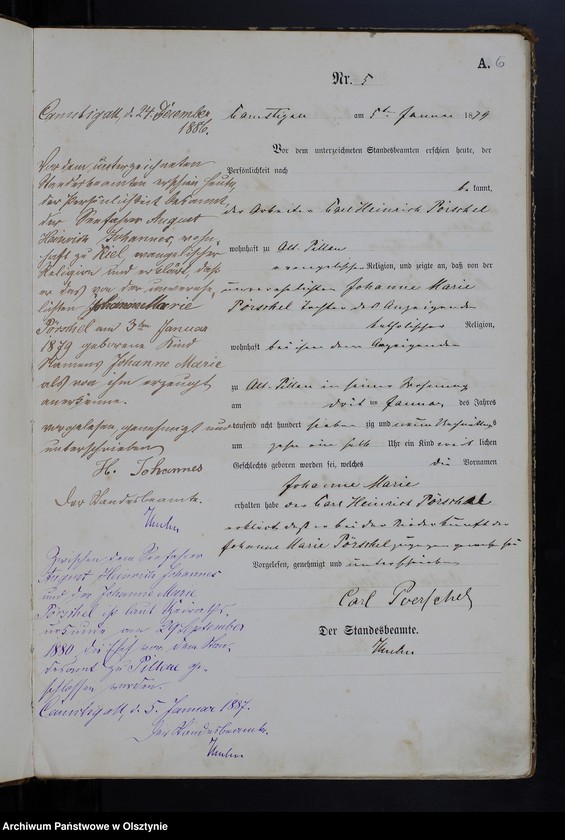 A. 6
Nr. 5
Camstigall am 5ten Januar 1879
Vor dem unterzeichneten Standesbeamten erschien heute, der
Persönlichkeit nach
be kannt,
der Arbeiter Carl Heinrich Pörschel
wohnhaft zu Alt Pillau
evangelischer Religion, und zeigte an, daß von der
unverehelichten Johanne Marie
Pörschel Tochter des Anzeigenden
katholischer Religion,
wohnhaft bei ihm dem Anzeigenden
zu Alt Pillau in seiner Wohnung
am dritten Januar des Jahres
tausend acht hundert sieben zig und neun Nachmittags
um zehn ein halb Uhr ein Kind weib lichen
Geschlechts geboren worden sei, welches die Vornamen
Johanne Marie
erhalten habe der Carl Heinrich Pörschel
erklärt daß er bei der Niederkunft der
Johanne Marie Pörschel zugegen gewesen sei
Vorgelesen, genehmigt und unterschrieben
Carl Poerschel
Der Standesbeamte.
Camstigall, d. 24. December
1886.
Vor dem unterzeichneten
Standesbeamten erschien heute,
der Persönlichkeit bekannt,
der Seefahrer August
Heinrich Johannes, wohn-
haft zu Kiel, evangelischer
Religion und erklärt, daß
er das von der unverehe-
lichten Johanne Marie
Pörschel am 3ten Januar
1879 geborene Kind
Namens Johanne Marie
als von ihm erzeugt
anerkenne.
vorgelesen, genehmigt und
unterschrieben
H. Johannes
Der Standesbeamte.
Zwischen dem Seefahrer
August Heinrich Johannes
und der Johanne Marie
Pörschel ist laut Heiraths-
urkunde vom 29 September
1880 die Ehe vor dem Stan-
desamt zu Pillau ge-
schlossen worden.
Camstigall, d. 5. Januar 1887.
Der Standesbeamte.
Archiwum Państwowe w Olsztynie